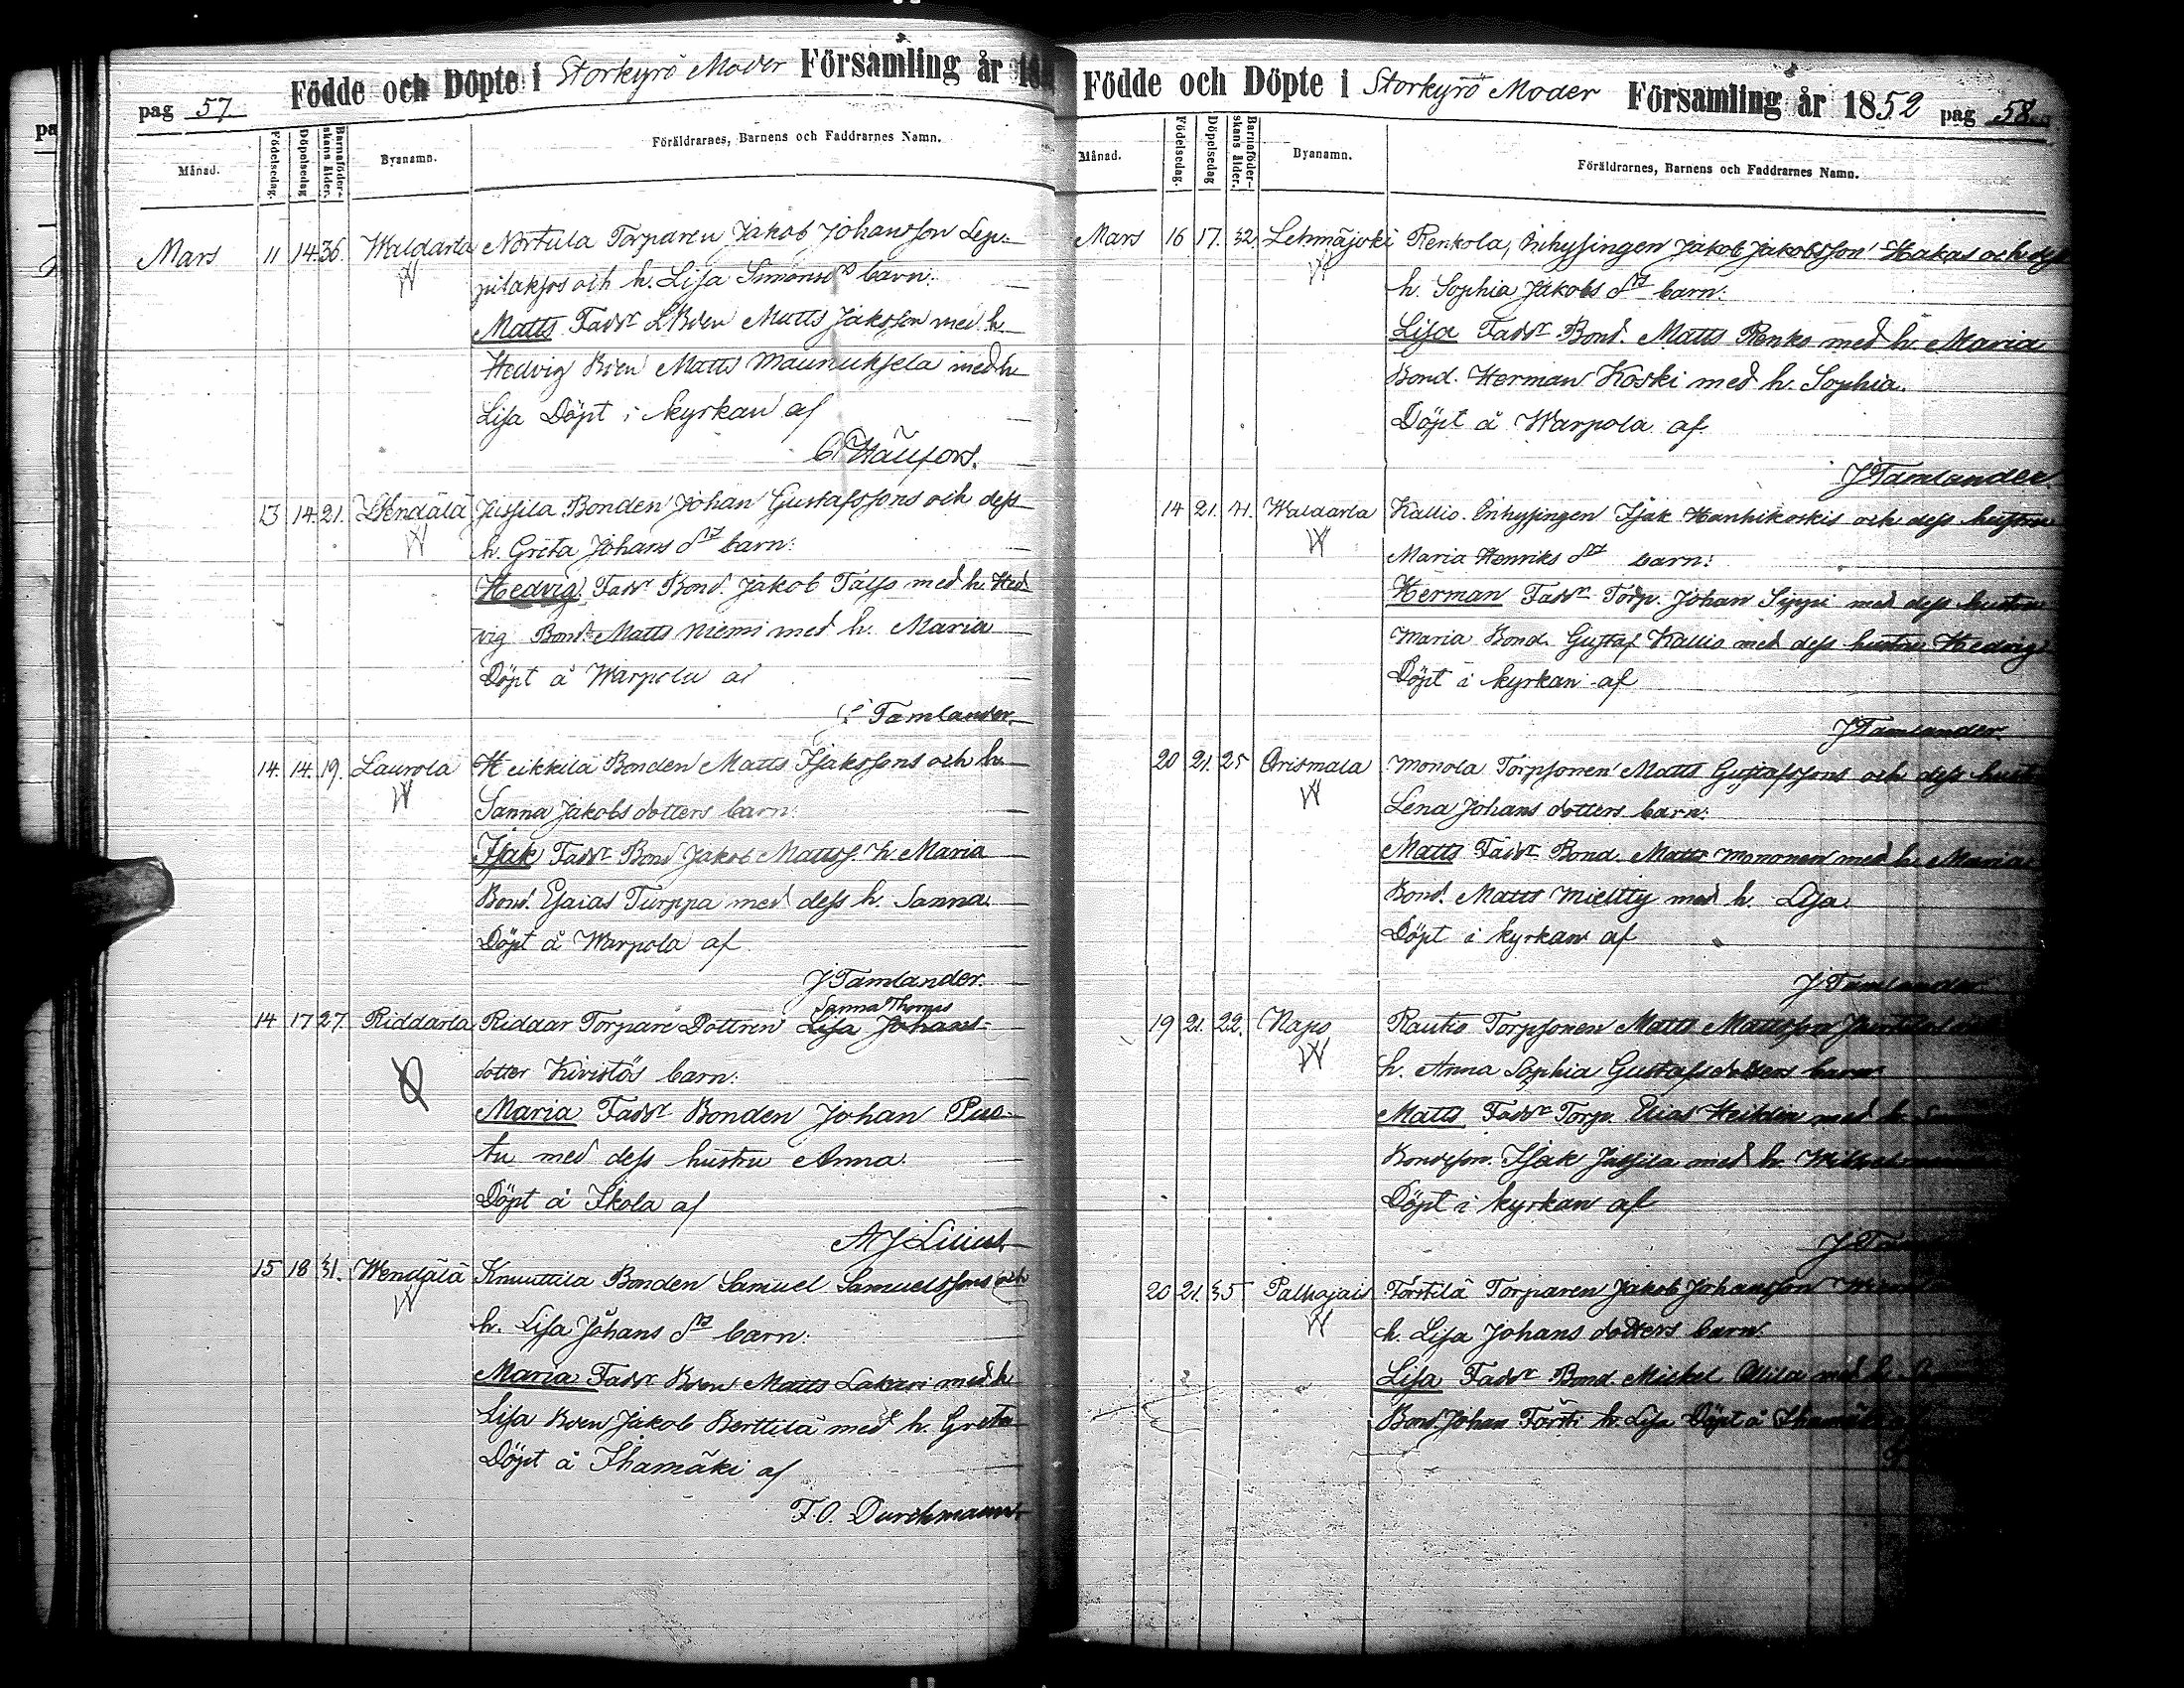 pag 57.
Födde och Döpte i Storkyrö Moder Församling år
Månad.
Födelsedag.
Döpelsedag
Barnaföder-skans ålder.
Byanamn.
Föräldrarnes, Barnens och Faddrarnes Namn.
Mars 11 14. 36. Waldarla Nortula Torparen Jakob Johansson Lep-
pilaksos och h. Lisa Simonsd barn:
W
Matts Faddr LBden Matts Jaksson med h.
Hedvig Bden Matts Maunuksela med h.
Lisa Döpt i kyrkan af
13 14. 21. Wendälä Jussila Bonden Johan Gustafssons och dess
W
h. Greta Johans dr barn:
Hedvig Faddr Bond. Jakob Talso med h. Hed-
vig Bond. Matts Niemi med h. Maria
Döpt å Warpola af
J Tamlander.
14. 14. 19. Laurola Heikkilä Bonden Matts Isakssons och h.
W
Sanna Jakobs dotters barn:
Isak Faddr Bond Jakob Mattss. h. Maria
Bond. Esaias Turppa med dess h. Sanna.
Döpt å Warpola af
J Tamlander.
Sanna Thomas
14 17 27. Riddarla Riddar Torpare Dottren Lisa Johans-
dotter Kivistös barn:
Maria Faddr Bonden Johan Pus-
tu med dess hustru Anna.
Döpt å Ikola af
A J Lilius
15 18 31. Wendälä Knuuttila Bonden Samuel Samuelssons och
W
h. Lisa Johans dr barn:
Maria Faddr Bden Matts Lakari med h
Lisa Bden Jakob Berttilä med h. Greta
Döpt å Ihamäki af
F. O. Durchman
Födde och Döpte i Storkyrö Moder Församling år 1852 pag 58.
Månad.
Födelsedag.
Döpelsedag
Barnaföder-skans ålder.
Byanamn.
Föräldrarnes, Barnens och Faddrarnes Namn.
Mars 16 17. 32. Lehmäjoki Renkola, Inhysingen Jakob Jakobsson Hakas och dess
W
h. Sophia Jakobs dr barn:
Lisa Faddr Bond. Matts Renko med h. Maria
Bond. Herman Koski med h. Sophia.
Döpt å Warpola af
J Tamlander.
14 21. 41. Waldarla Kallio. Inhysingen Isak Hanhikoskis och dess hustru
W
Maria Henriks dr barn:
Herman Faddr Torp. Johan Sippi med dess hustru
Maria Bond. Gustaf Kallio med dess hustru Hedvig
Döpt i kyrkan af
J Tamlander.
20 21. 25 Orismala Monola Torpsonen Matts Gustafssons och dess hust
W
Lena Johans dotters barn:
Matts Faddr Bond. Matts Mononen med h. Maria
Bond. Matts Mieltty med h. Lisa.
Döpt i kyrkan af
J Tamlander
19 21. 22. Napo Rautio Torpsonen Matts Mattsson
W
h. Anna Sophia Gustafsdotters barn
Matts Faddr Torp. Elias Heikkilä med h.
Bondeson. Isak Jussila med h.
Döpt i kyrkan af
20 21. 35 Palhojais Törstilä Torparen Jakob Johansson
W
h. Lisa Johans dotters barn.
Lisa Faddr Bond. Mickel Ollila med h.
Bond. Johan Törsti h. Lisa Döpt å Ihamäki